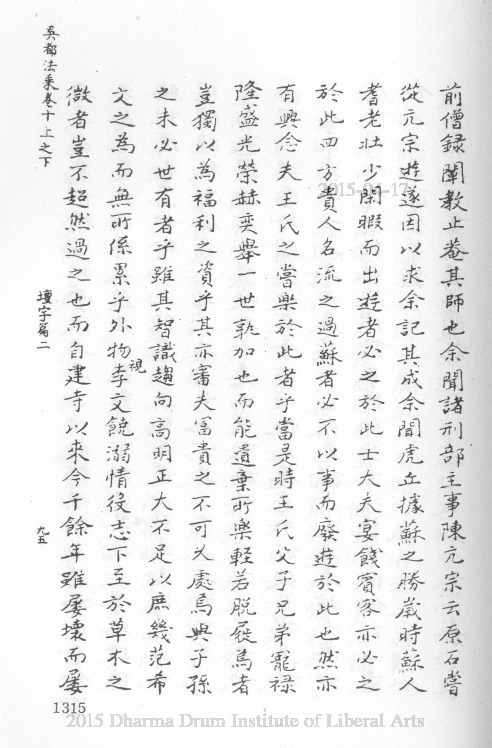 吳都法乘卷十上之下
壇宇篇二
九五
前僧録闡教止菴其師也余聞諸刑部主事陳亢宗云原石嘗
從亢宗遊遂因以求余記其成余聞虎丘據蘇之勝歲時蘇人
耆老壯少閑暇而出遊者必之於此士大夫宴餞賓客亦必之
於此四方貴人名流之過蘇者必不以事而廢遊於此也然亦
有興念夫王氏之嘗樂於此者乎當是時王氏父子兄弟寵祿
隆盛光榮赫奕舉一世孰加也而能遺棄所樂輕若脫屣焉者
豈獨以為福利之資乎其亦審夫富貴之不可久處焉與子孫
之未必世有者乎雖其智識趨向高明正大不足以庶幾范希
文之為而無所係累乎外物視李文饒溺情役志下至於草木之
微者豈不超然過之也而自建寺以來今千餘年雖屢壞而屢
1315
2015-04-17
2015 Dharma Drum Institute of Liberal Arts